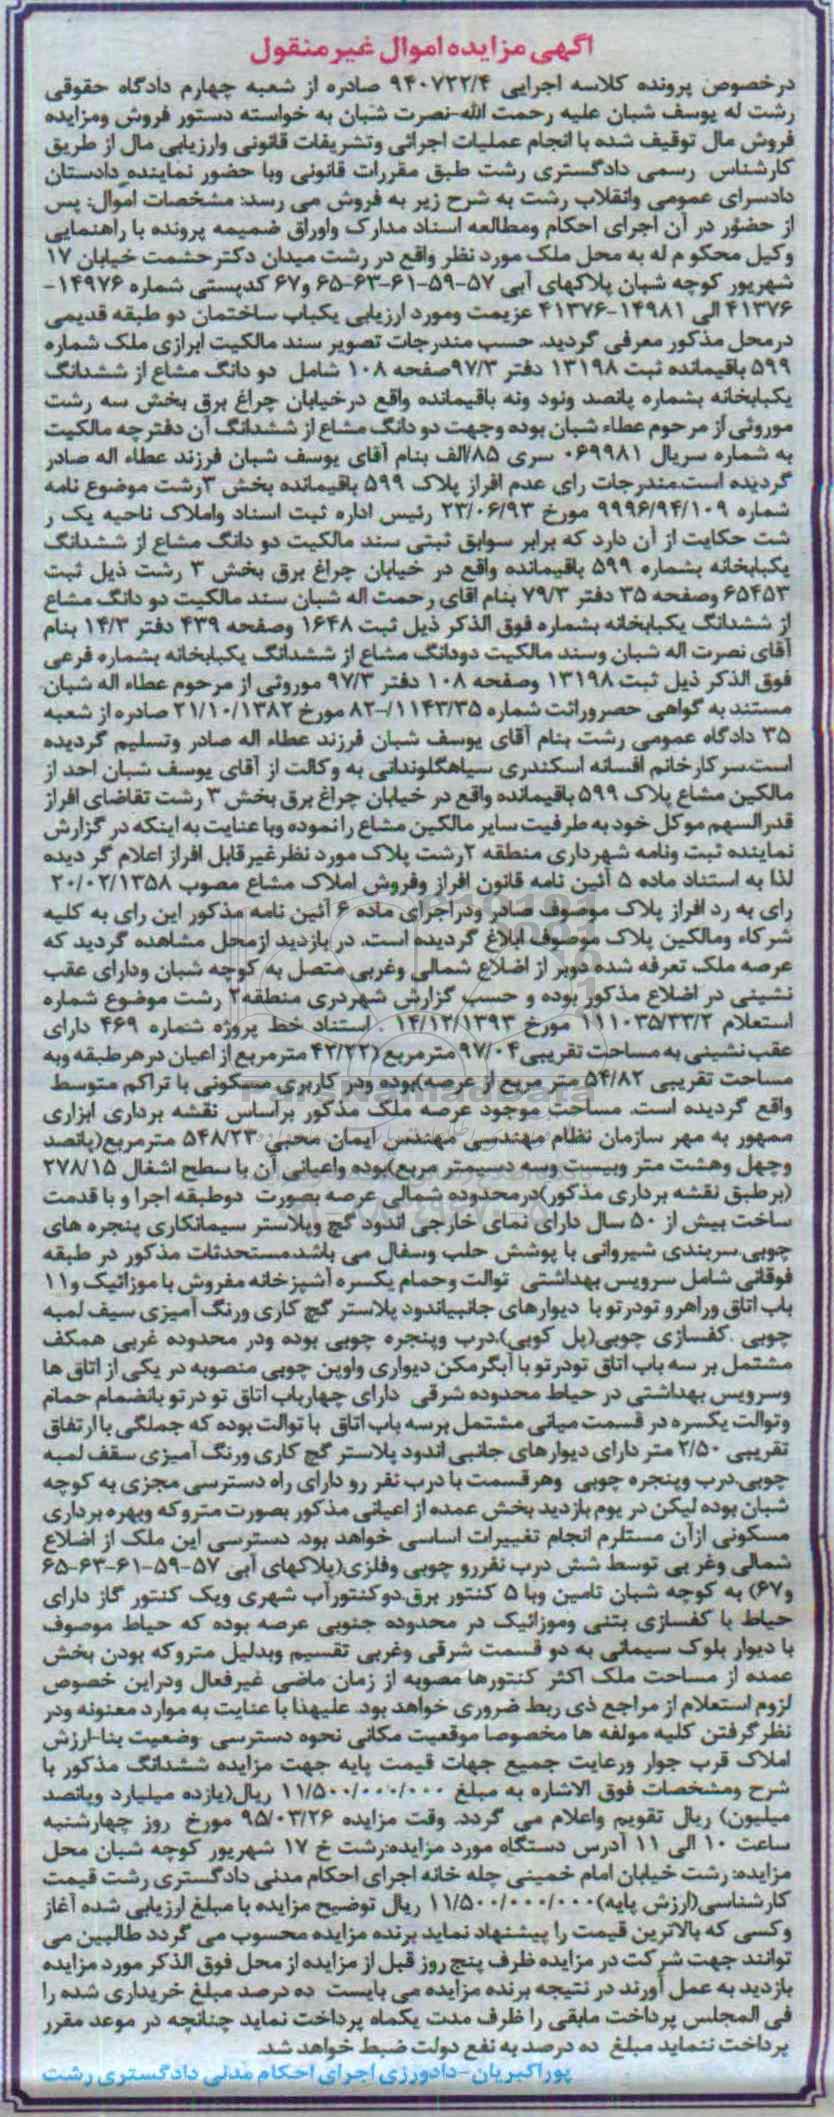 آگهی مزایده اموال غیر منقول
درخصوص پرونده کلاسه اجرایی ۹۴۰۷۲۲/۴ صادره از شعبه چهارم دادگاه حقوقی
رشت له یوسف شبان علیه رحمت الله-نصرت شبان به خواسته دستور فروش ومزایده
فروش مال توقیف شده با انجام عملیات اجرائی وتشریفات قانونی وارزیابی مال از طریق
کارشناس رسمی دادگستری رشت طبق مقررات قانونی وبا حضور نماینده دادستان
دادسرای عمومی وانقلاب رشت به شرح زیر به فروش می رسد: مشخصات اموال: پس
از حضور در آن اجرای احکام ومطالعه اسناد مدارک واوراق ضمیمه پرونده با راهنمایی
وکیل محکو م له به محل ملک مورد نظر واقع در رشت میدان دکتر حشمت خیابان ۱۷
شهریور کوچه شبان پلاکهای آبی ۵۷-۵۹-۶۱-۶۳-۶۵ و۶۷ کدپستی شماره ۱۴۹۷۶-
۴۱۳۷۶ الی ۱۴۹۸۱-۴۱۳۷۶ عزیمت ومورد ارزیابی یکباب ساختمان دو طبقه قدیمی
درمحل مذکور معرفی گردید. حسب مندرجات تصویر سند مالکیت ابرازی ملک شماره
۵۹۹ باقیمانده ثبت ۱۳۱۹۸ دفتر ۹۷/۳صفحه ۱۰۸ شامل دو دانگ مشاع از ششدانگ
یکبابخانه بشماره پانصد ونود ونه باقیمانده واقع درخیابان چراغ برق بخش سه رشت
موروثی از مرحوم عطاء شبان بوده وجهت دو دانگ مشاع از ششدانگ آن دفترچه مالکیت
به شماره سریال ۰۶۹۹۸۱ سری ۸۵/الف بنام آقای یوسف شبان فرزند عطاء اله صادر
گردیده است.مندرجات رای عدم افراز پلاک ۵۹۹ باقیمانده بخش ۳رشت موضوع نامه
شماره ۹۹۹۶/۹۴/۱۰۹ مورخ ۲۳/۰۶/۹۳ رئیس اداره ثبت اسناد واملاک ناحیه یک ر
شت حکایت از آن دارد که برابر سوابق ثبتی سند مالکیت دو دانگ مشاع از ششدانگ
یکبابخانه بشماره ۵۹۹ باقیمانده واقع در خیابان چراغ برق بخش ۳ رشت ذیل ثبت
۶۵۴۵۳ وصفحه ۳۵ دفتر ۷۹/۳ بنام اقای رحمت اله شبان سند مالکیت دو دانگ مشاع
از ششدانگ یکبابخانه بشماره فوق الذکر ذیل ثبت ۱۶۴۸ وصفحه ۴۳۹ دفتر ۱۴/۳ بنام
آقای نصرت اله شبان وسند مالکیت دودانگ مشاع از ششدانگ یکبابخانه بشماره فرعی
فوق الذکر ذیل ثبت ۱۳۱۹۸ وصفحه ۱۰۸ دفتر ۹۷/۳ موروثی از مرحوم عطاء اله شبان
مستند به گواهی حصروراثت شماره ۱۱۴۳/۳۵/-۸۲ مورخ ۲۱/۱۰/۱۳۸۲ صادره از شعبه
۳۵ دادگاه عمومی رشت بنام آقای یوسف شبان فرزند عطاء اله صادر وتسلیم گردیده
است.سرکارخانم افسانه اسکندری سیاهگلوندانی به وکالت از آقای یوسف شبان احد از
مالکین مشاع پلاک ۵۹۹ باقیمانده واقع در خیابان چراغ برق بخش ۳ رشت تقاضای افراز
قدرالسهم موکل خود به طرفیت سایر مالکین مشاع را نموده وبا عنایت به اینکه در گزارش
نماینده ثبت ونامه شهرداری منطقه ۲رشت پلاک مورد نظر غیرقابل افراز اعلام گر دیده
لذا به استناد ماده ۵ آئین نامه قانون افراز وفروش املاک مشاع مصوب ۲۰/۰۲/۱۳۵۸
رای به رد افراز پلاک موصوف صادر ودراجرای ماده ۶ آئین نامه مذکور این رای به کلیه
شرکاء ومالکین پلاک موصوف ابلاغ گردیده است. در بازدید ازمحل مشاهده گردید که
عرصه ملک تعرفه شده دوبر از اضلاع شمالی وغربی متصل به کوچه شبان ودارای عقب
نشینی در اضلاع مذکور بوده و حسب گزارش شهردری منطقه۲ رشت موضوع شماره
استعلام ۱۱۱۰۳۵/۳۳/۲ مورخ ۱۴/۱۲/۱۳۹۳ . استناد خط پروژه شماره ۴۶۹ دارای
عقب نشینی به مساحت تقریبی۹۷/۰۴ مترمربع (۴۲/۲۲ مترمربع از اعیان در هر طبقه وبه
مساحت تقریبی ۵۴/۸۲ متر مربع از عرصه)بوده ودر کاربری مسکونی با تراکم متوسط
واقع گردیده است. مساحت موجود عرصه ملک مذکور براساس نقشه برداری ابزاری
ممهور به مهر سازمان نظام مهندسی مهندس ایمان محبی ۵۴۸/۲۳ مترمربع(پانصد
وچهل وهشت متر وبیست وسه دسیمتر مربع)بوده واعیانی آن با سطح اشغال ۲۷۸/۱۵
(برطبق نقشه برداری مذکور)درمحدوده شمالی عرصه بصورت دوطبقه اجرا و با قدمت
ساخت بیش از ۵۰ سال دارای نمای خارجی اندود گچ وپلاستر سیمانکاری پنجره های
چوبی.سربندی شیروانی با پوشش حلب وسفال می باشد.مستحدثات مذکور در طبقه
فوقانی شامل سرویس بهداشتی توالت وحمام یکسره آشپزخانه مفروش با موزائیک و۱۱
باب اتاق وراهرو تودرتو با دیوارهای جانبیاندود پلاستر گچ کاری ورنگ آمیزی سیف لمبه
چوبی .کفسازی چوبی(پل کوبی).درب وپنجره چوبی بوده ودر محدوده غربی همکف
مشتمل بر سه باب اتاق تودرتو با آبگرمکن دیواری واوپن چوبی منصوبه در یکی از اتاق ها
وسرویس بهداشتی در حیاط محدوده شرقی دارای چهارباب اتاق تو درتو بانضمام حمام
وتوالت یکسره در قسمت میانی مشتمل برسه باب اتاق با توالت بوده که جملگی با ارتفاق
تقریبی ۲/۵۰ متر دارای دیوارهای جانبی اندود پلاستر گچ کاری ورنگ آمیزی سقف لمبه
چوبی.درب وپنجره چوبی وهرقسمت با درب نفر رو دارای راه دسترسی مجزی به کوچه
شبان بوده لیکن در یوم بازدید بخش عمده از اعیانی مذکور بصورت متروکه وبهره برداری
مسکونی ازآن مستلرم انجام تغییرات اساسی خواهد بود. دسترسی این ملک از اضلاع
شمالی وغر بی توسط شش درب نفررو چوبی وفلزی(پلاکهای آبی ۵۷-۵۹-۶۱-۶۳-۶۵
و۶۷) به کوچه شبان تامین وبا ۵ کنتور برق.دوکنتورآب شهری ویک کنتور گاز دارای
حیاط با کفسازی بتنی وموزائیک در محدوده جنوبی عرصه بوده که حیاط موصوف
با دیوار بلوک سیمانی به دو قسمت شرقی وغربی تقسیم وبدلیل متروکه بودن بخش
عمده از مساحت ملک اکثر کنتورها مصوبه از زمان ماضی غیرفعال ودراین خصوص
لزوم استعلام از مراجع ذی ربط ضروری خواهد بود. علیهذا با عنایت به موارد معنونه ودر
نظر گرفتن کلیه مولفه ها مخصوصا موقعیت مکانی نحوه دسترسی وضعیت بنا-ارزش
املاک قرب جوار ورعایت جمیع جهات قیمت پایه جهت مزایده ششدانگ مذکور با
شرح ومشخصات فوق الاشاره به مبلغ ۱۱/۵۰۰/۰۰۰/۰۰۰ ریال(یازده میلیارد وپانصد
میلیون) ریال تقویم واعلام می گردد. وقت مزایده ۹۵/۰۳/۲۶ مورخ روز چهارشنبه
ساعت ۱۰ الی ۱۱ آدرس دستگاه مورد مزایده:رشت خ ۱۷ شهریور کوچه شبان محل
مزایده: رشت خیابان امام خمینی چله خانه اجرای احکام مدنی دادگستری رشت قیمت
کارشناسی(ارزش پایه)۱۱/۵۰۰/۰۰۰/۰۰۰ ریال توضیح مزایده با مبلغ ارزیابی شده آغاز
وکسی که بالاترین قیمت را پیشنهاد نماید برنده مزایده محسوب می گردد طالبین می
توانند جهت شرکت در مزایده ظرف پنج روز قبل از مزایده از محل فوق الذکر مورد مزایده
بازدید به عمل آورند در نتیجه برنده مزایده می بایست ده درصد مبلغ خریداری شده را
فی المجلس پرداخت مابقی را ظرف مدت یکماه پرداخت نماید چنانچه در موعد مقرر
پرداخت ننماید مبلغ ده درصد به نفع دولت ضبط خواهد شد.
پوراکبریان-دادورزی اجرای احکام مدنی دادگستری رشت
ParsNamadData